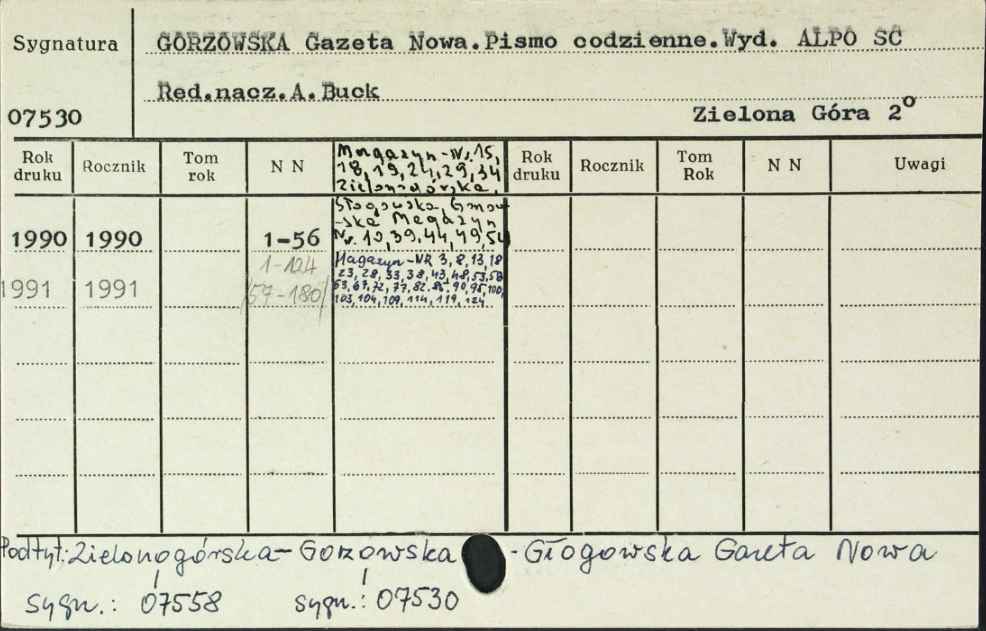 Sygnatura
GORZOWSKA Gazeta Nowa.Pismo codzienne.Wyd. ALPO SC
Red.nacz.A.Buck
07530
Zielona Góra 2°
Rok druku Rocznik Tom rok N N Magazyn-Nr.15, Rok druku Rocznik Tom Rok N N Uwagi
18,19,24,29,34
Zielonogórska,
Głogowska, Gorzow
-ska Magazyn
1990 1990 1-56 Nr. 10,39,44,49,54
1-124 Magazyn-NR 3,8,13,18
1991 1991 /57-180/ 23,28,33,38,43,48,53,58
63,67,72,77,82.86,90,95,100,
103,104,109,114,119,124
Podtyt:Zielonogórska-Gorzowska - Głogowska Gazeta Nowa
sygn.: 07558 sygn.: 07530